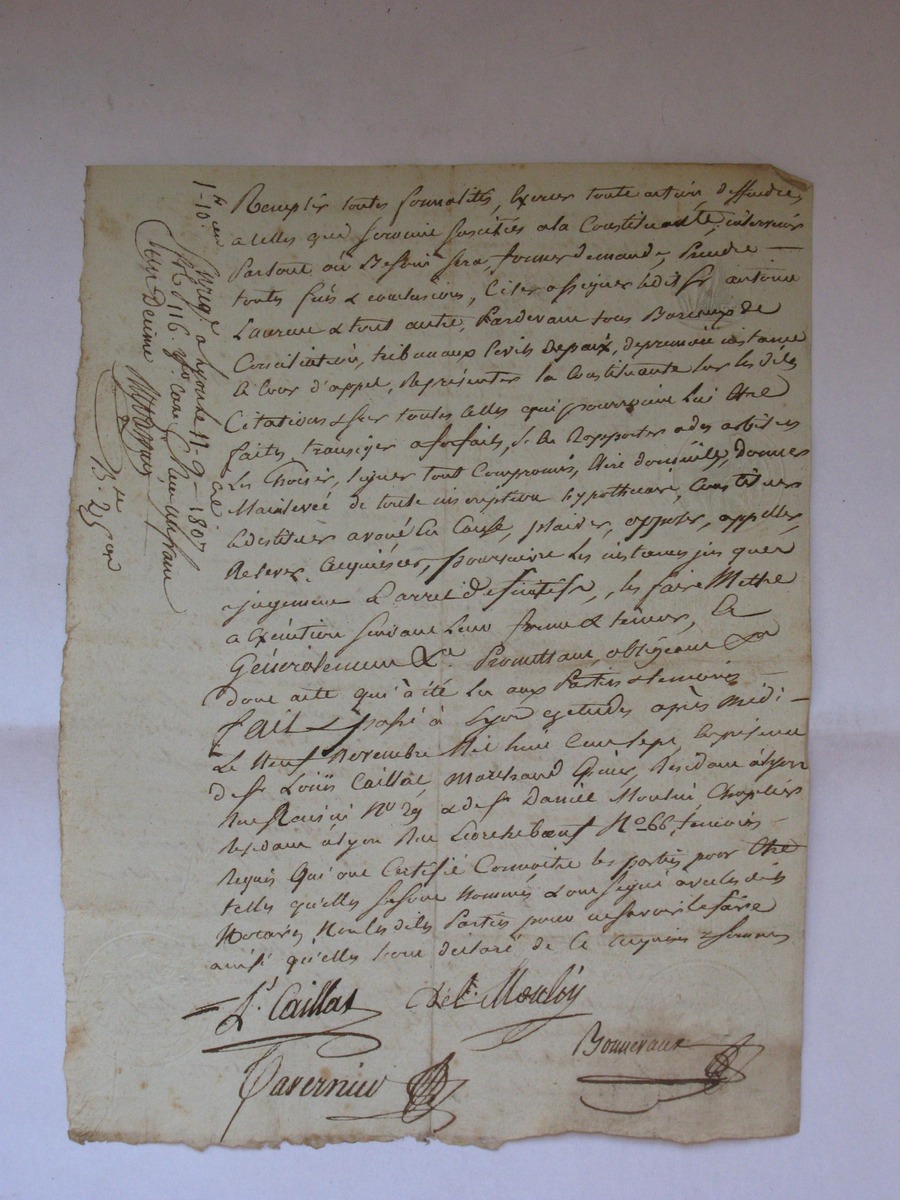 Remplir toutes formalités, Exercer toute action deffendre
a Celles qui seroient suscitées ala Constituante, intervenir
Partout où Besoin sera, former demande, Prendre —
toutes fins & conclusions, Citer assigner ledit Sr antoine
Laurent & tout autre, Pardevant tous Bureaux de
Conciliation, tribunaux Civils Depaix, depremiere instance
& Cour d'appel, Représenter la Constituante sur les dites
Citations & sur toutes celles qui pourroient lui Etre
faites, transiger aforfaits, S'en Rapporter ades arbitres
Les Choisir, signer tout Compromis, Elire domicile, donner
Mainlevée de toute inscription hypothecaire, Constituer
& destituer avoué En Cause, plaider, opposer, appeller,
Relever, acquiescer, poursuivre les instances jusquea
jugement & arret Definitifs, les faire Mettre
a Exécution suivant Leur forme & teneur, &
Généralement &a. Promettant, obligeant &a
dont acte qui a été Lu aux Parties & temoins
Fait & passé à Lyon Ez etudes après Midi —
Le Neuf Novembre Mil huit Cent sept, En présence
de Sr Loüis Caillat, Marchand Epicier, Residant àLyon
Rue Raisin No 29 & de Sr Daniel Moulin, Chapelier
Residant àLyon Rue Ecorchebœuf No 66, temoins —
Requis Qui ont Certifié Connoitre les parties pour Etre
telles qu'elles se sont Nommées & ont signé avec lesdits
Notaires Non lesdites Parties pour ne savoir le faire
ainsi qu'elles l'ont déclaré de Ce enquises & sommées
Lis Caillat Del Moulin
Bonnevaux
Tavernier
Enrgé a Lyon le 11-9-1807
fo 116 Ro case Reçu un franc
un Decime